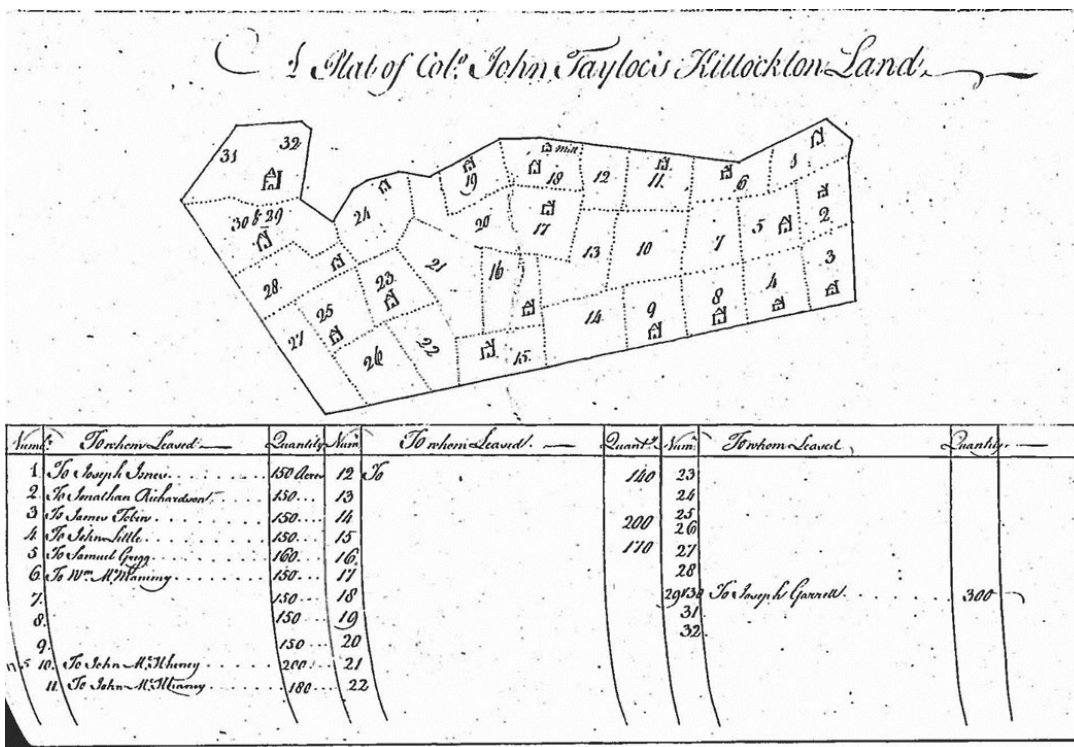 A Plat of Col.º John Tayloe's Kittockton Land.
31 32
30 & 29
28
27
25
26
24
23
22
21
20
19
Mill
18
17
16
15
14
13
12
11
10
9
8
7
6
5
4
3
2
1
Numb.r To whom Leased Quantity Num To whom Leased Quant.y Num To whom Leased Quantity
1 To Joseph Jones 150 Acres 12 To 140 23
2 To Jonathan Richardson 150 13 24
3 To James Tobin 150 14 200 25
4 To John Little 150 15 170 26
5 To Samuel Gregg 160 16 27
6 To Wm. 150 17 28
7 150 18 29 & 30 To Joseph Garrett 300
8 150 19 31
9 150 20 32
10 To John 200 21
11 To John 180 22